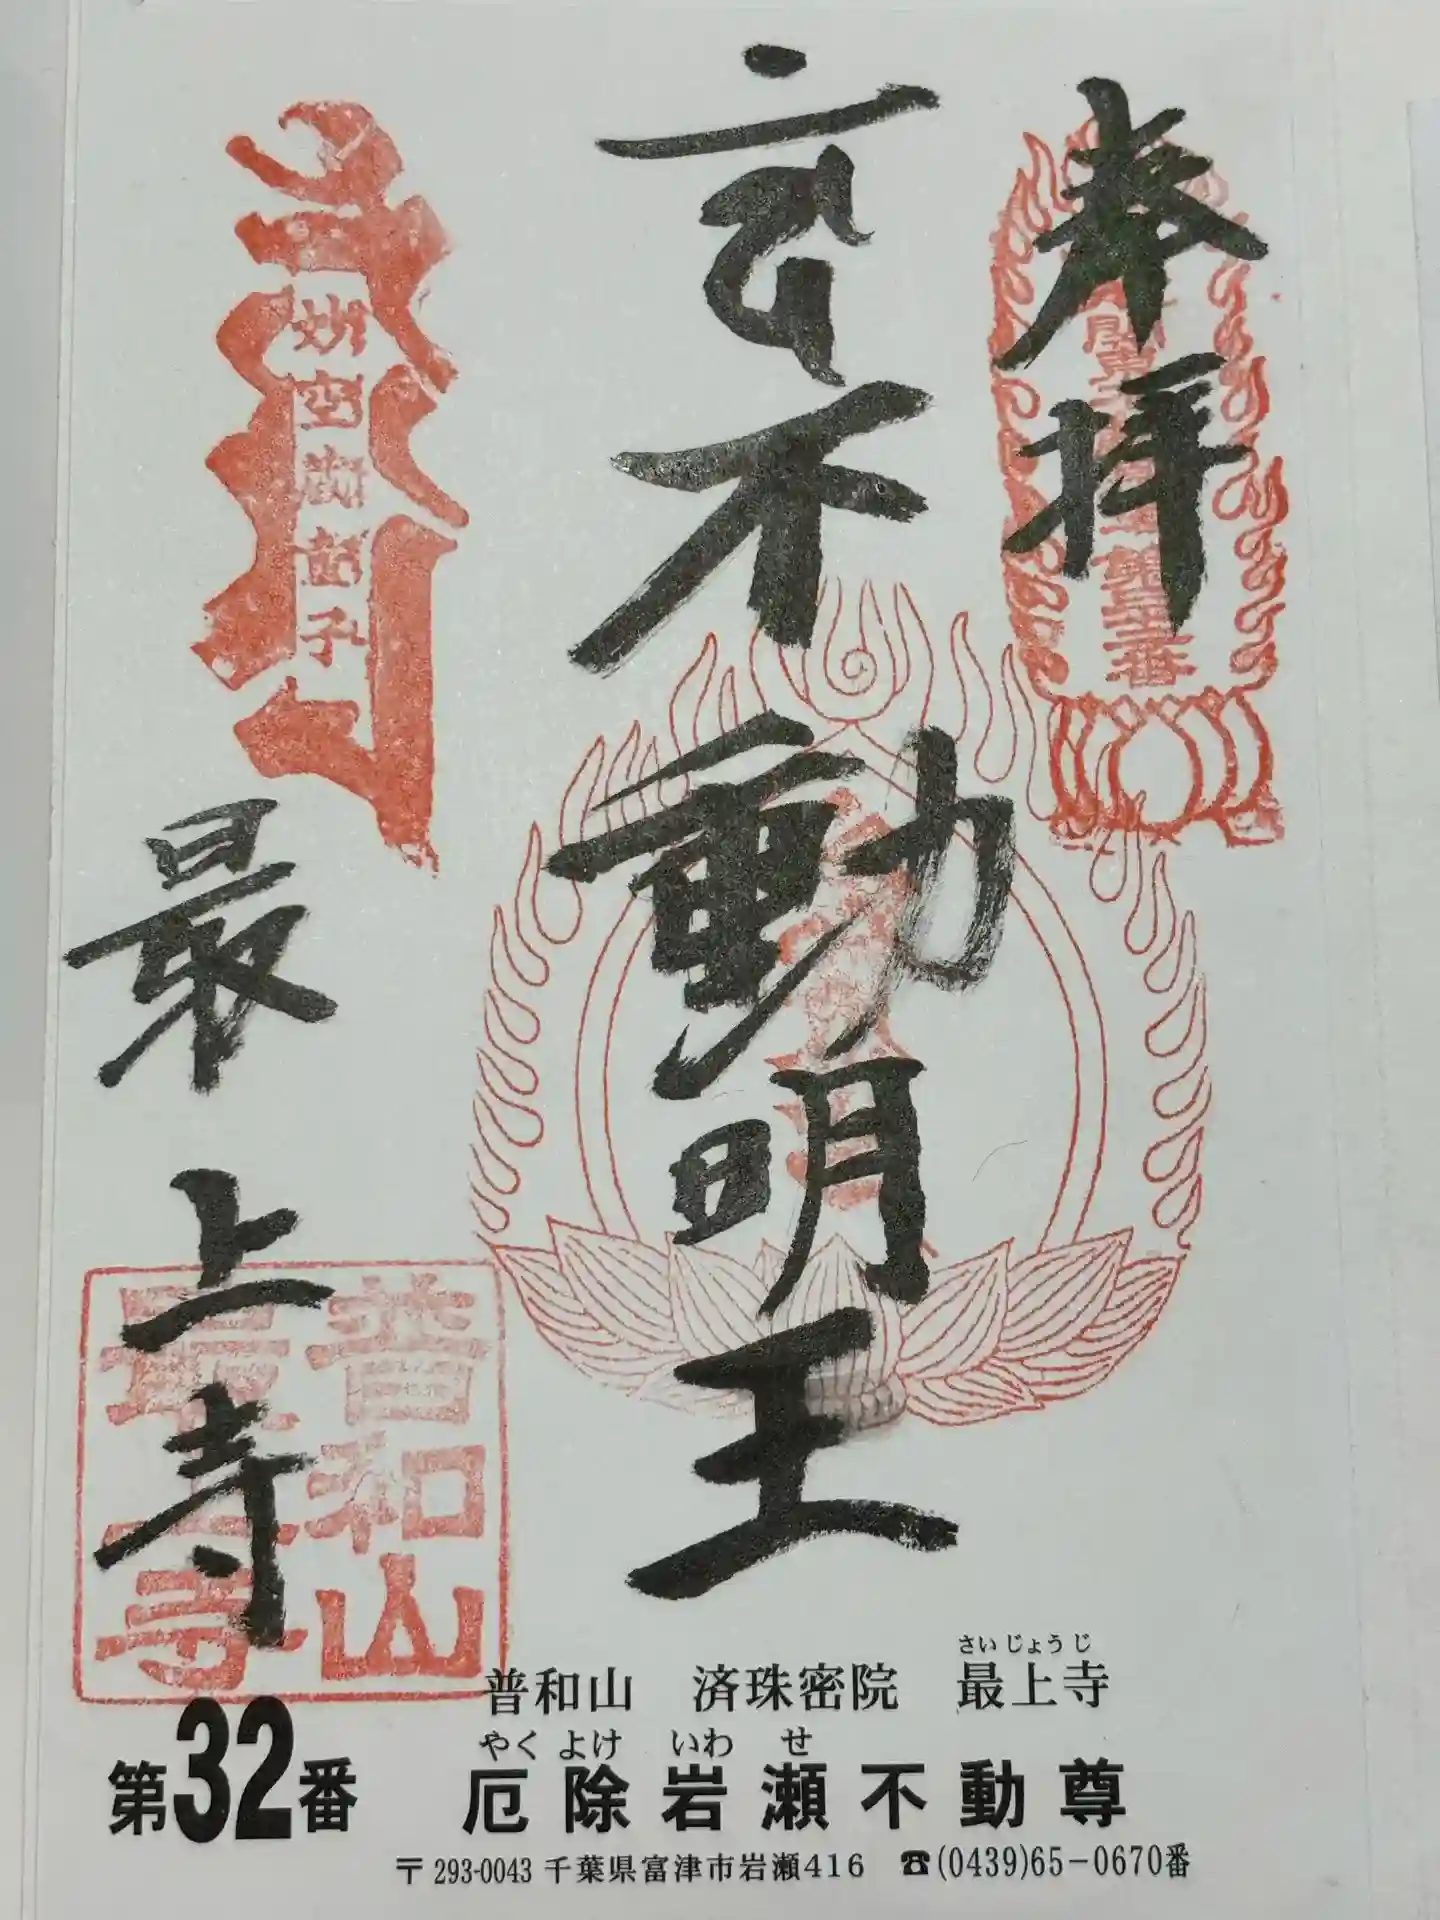 奉拝
不動明王
最上寺
妙空
童子
第三十二番
普和山
最上寺
普和山 済珠密院 最上寺
さいじょうじ
第32番
厄除岩瀬不動尊
やくよけ いわせ
〒293-0043 千葉県富津市岩瀬416 ☎(0439)65-0670番